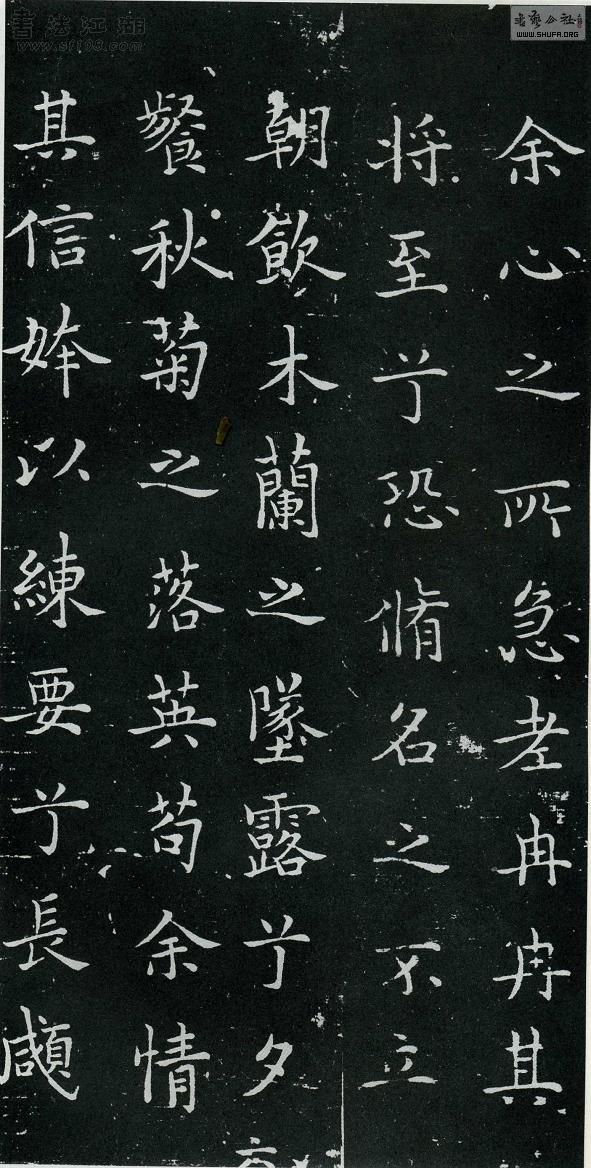 余心之所急老冉冉其
将至兮恐脩名之不立
朝飲木蘭之墜露兮夕
餐秋菊之落英苟余情
其信姱以練要兮長顑
書法江湖
WWW.SHUFA.ORG